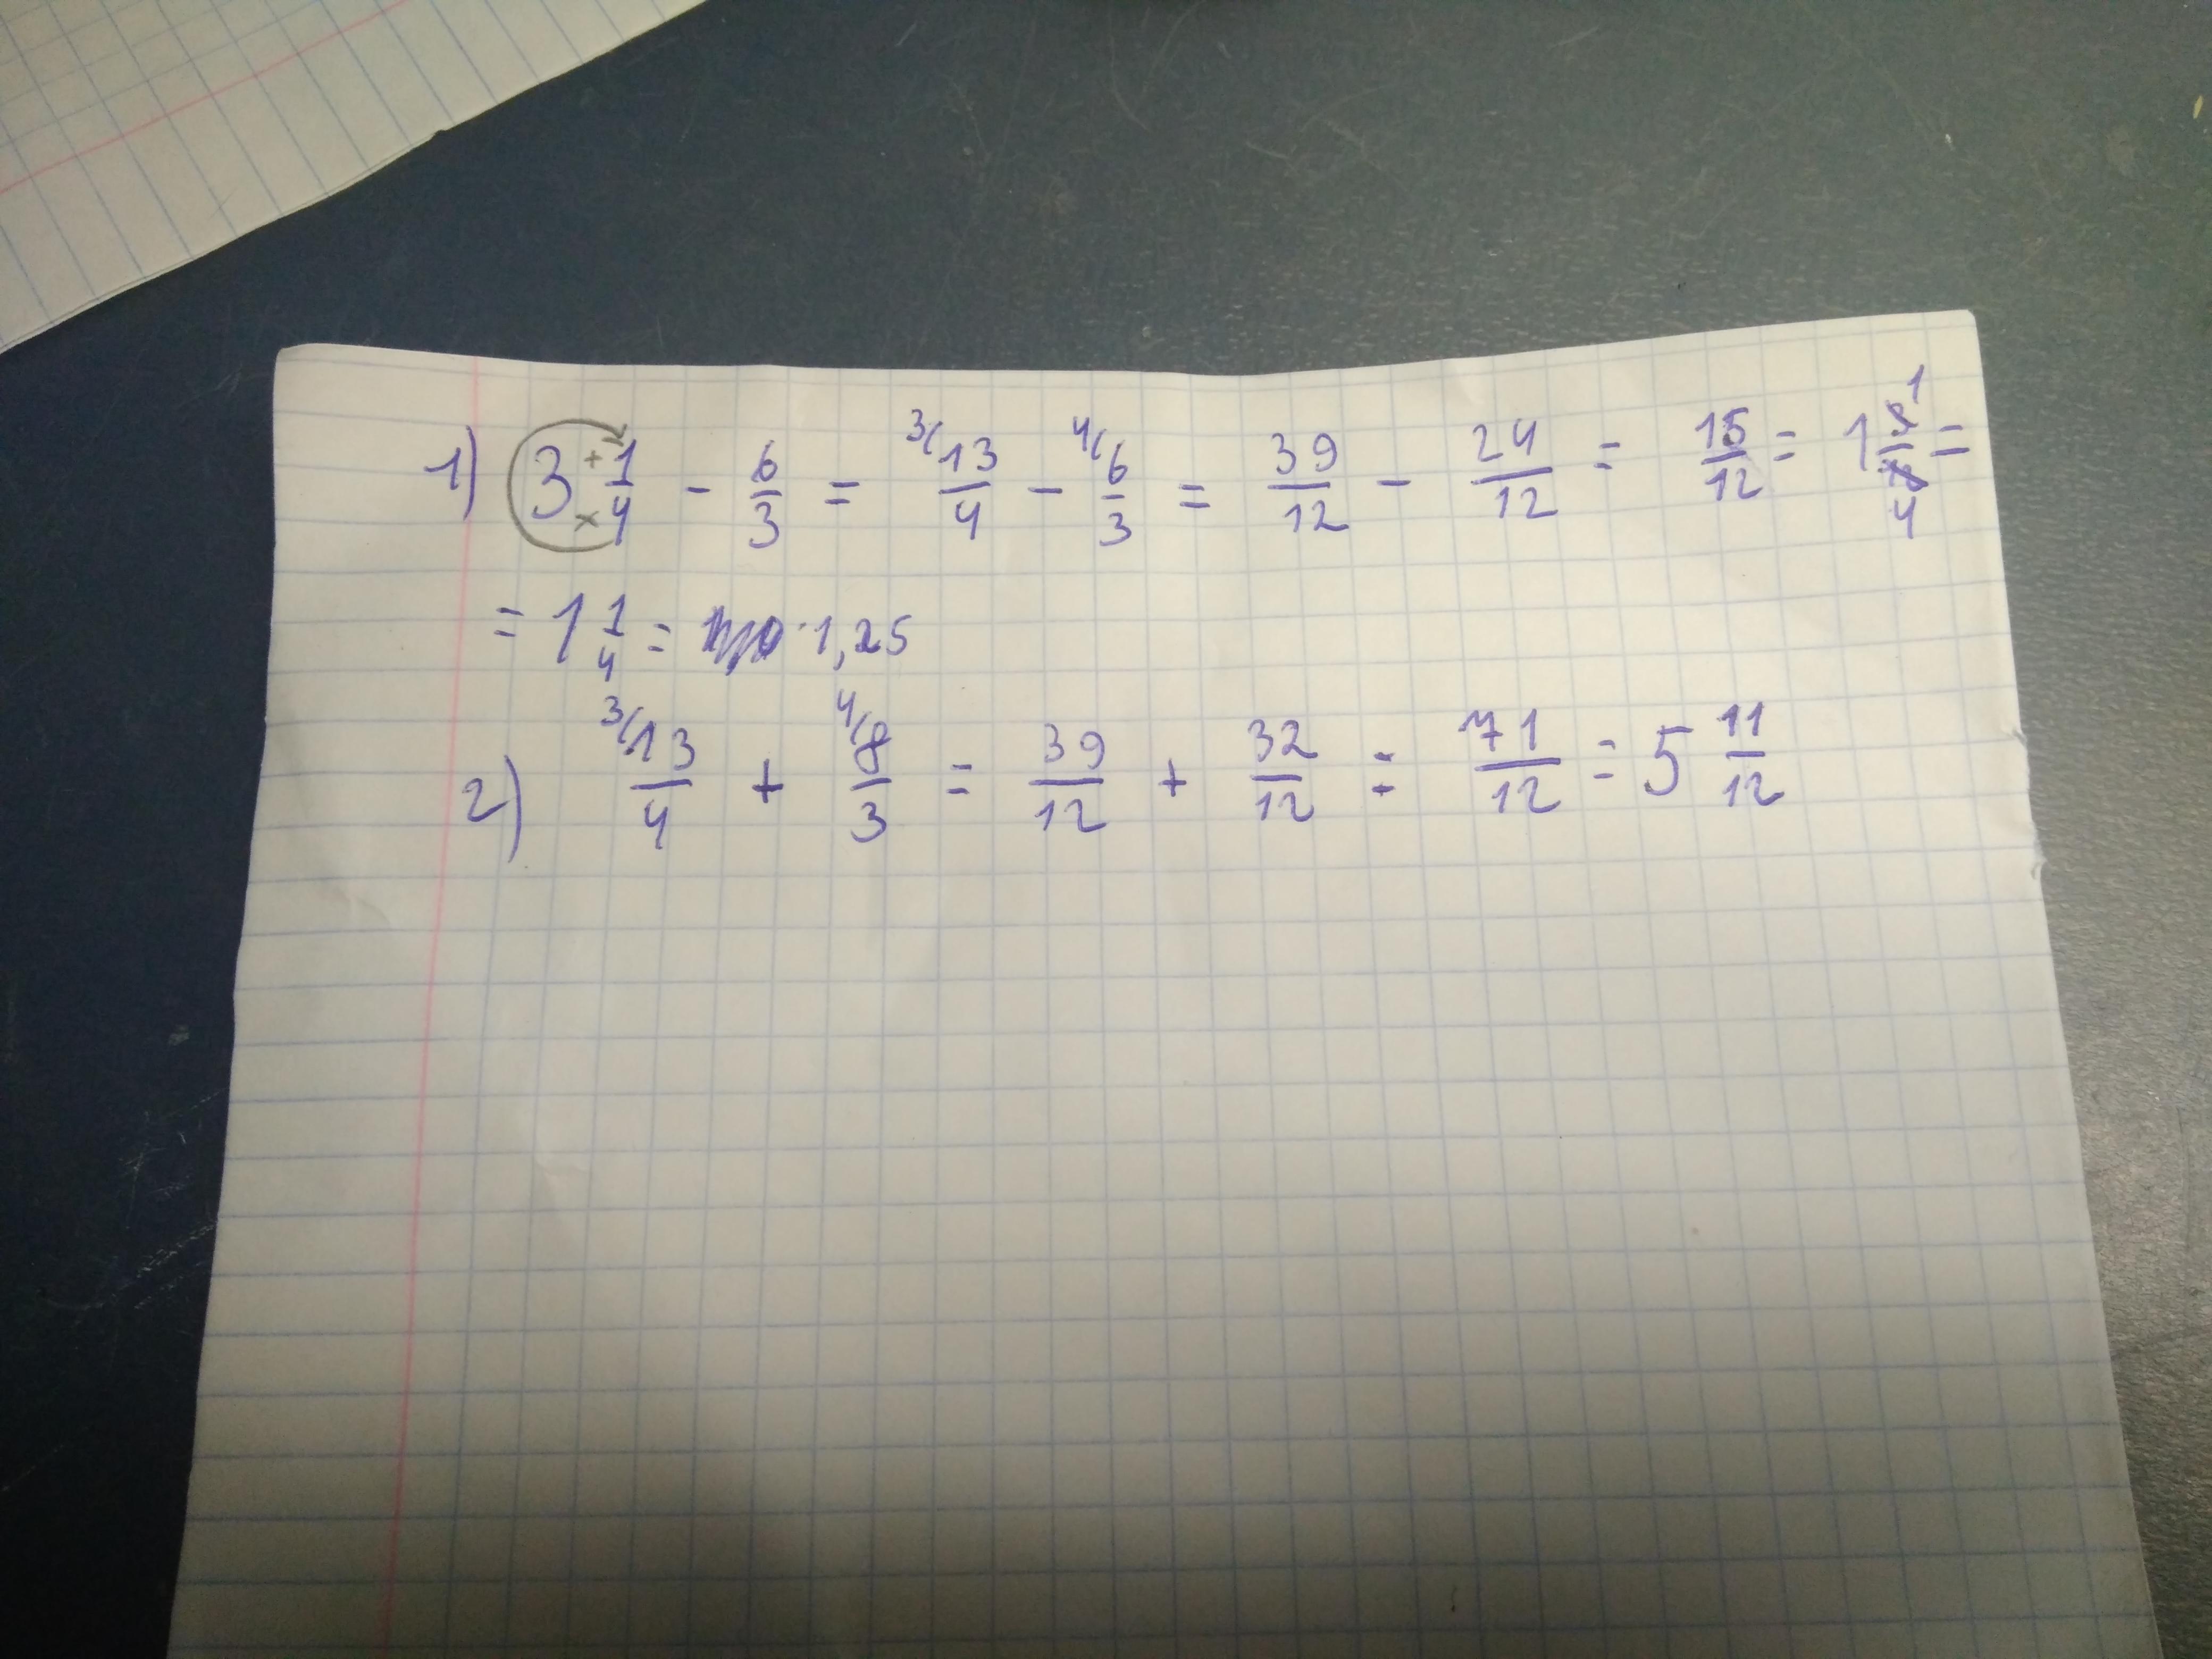 1) 3 + 1/4 × - 6/3 = 3/ 13/4 - 4/ 6/3 = 39/12 - 24/12 = 15/12 = 1 1/4 =
= 1 1/4 = 1,25
2) 3/ 13/4 + 4/ 8/3 = 39/12 + 32/12 = 71/12 = 5 11/12